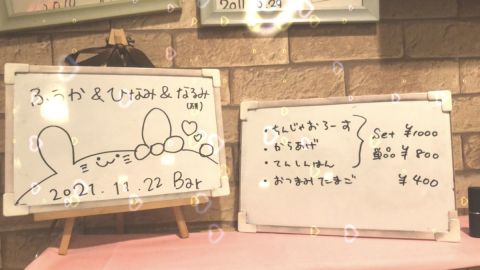 ふうか&ひなみ&なるみ
(研)
2021.11.22 Bar
・ちんじゃおろーす
・からあげ
・てんしんはん
Set ¥1000
単品 ¥800
・おつまみたまご ¥400